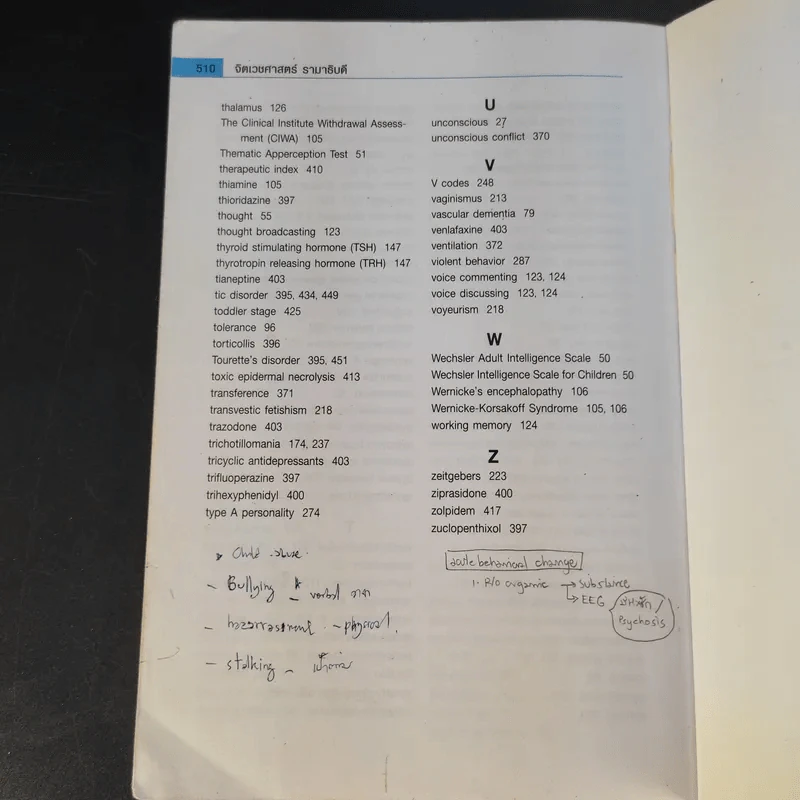 510 จิตเวชศาสตร์ รามาธิบดี
thalamus 126
The Clinical Institute Withdrawal Assess-
ment (CIWA) 105
Thematic Apperception Test 51
therapeutic index 410
thiamine 105
thioridazine 397
thought 55
thought broadcasting 123
thyroid stimulating hormone (TSH) 147
thyrotropin releasing hormone (TRH) 147
tianeptine 403
tic disorder 395, 434, 449
toddler stage 425
tolerance 96
torticollis 396
Tourette's disorder 395, 451
toxic epidermal necrolysis 413
transference 371
transvestic fetishism 218
trazodone 403
trichotillomania 174, 237
tricyclic antidepressants 403
trifluoperazine 397
trihexyphenidyl 400
type A personality 274
U
unconscious 27
unconscious conflict 370
V
V codes 248
vaginismus 213
vascular dementia 79
venlafaxine 403
ventilation 372
violent behavior 287
voice commenting 123, 124
voice discussing 123, 124
voyeurism 218
W
Wechsler Adult Intelligence Scale 50
Wechsler Intelligence Scale for Children 50
Wernicke's encephalopathy 106
Wernicke-Korsakoff Syndrome 105, 106
working memory 124
Z
zeitgebers 223
ziprasidone 400
zolpidem 417
zuclopenthixol 397
Child abuse
- Bullying - verbal
- - physical
- stalking -
acute behavioral change
1. R/O organic → substance
→ EEG
Psychosis